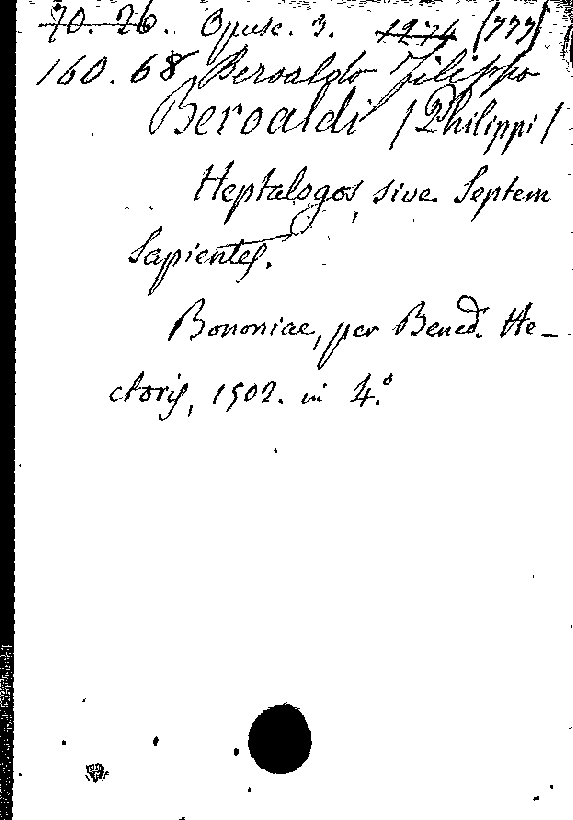 70. 26. Opusc. 3. 1274 (777)
160. 68 Beroaldo Filippo
Beroaldi (Philippi)
Heptalogos, sive Septem
Sapientes.
Bononiae, per Bened. He-
ctoris, 1502. in 4.º